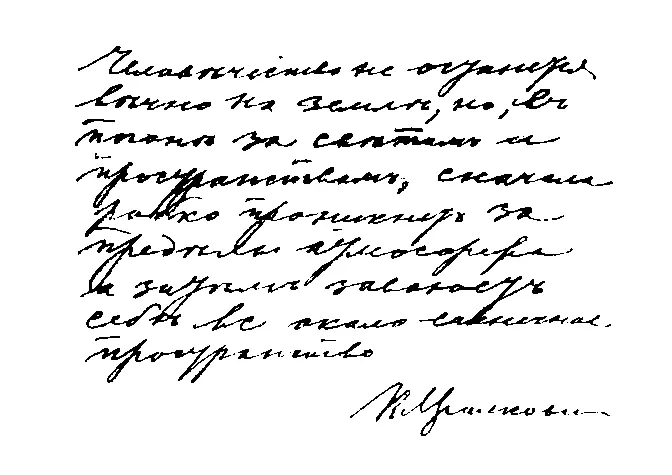 Человѣчество не останется
вѣчно на землѣ, но, въ
погонѣ за свѣтомъ и
пространствомъ, сначала
робко проникнетъ за
предѣлы атмосферы
а затѣмъ завоюетъ
себѣ все около солнечное
пространство
К. Циолковский